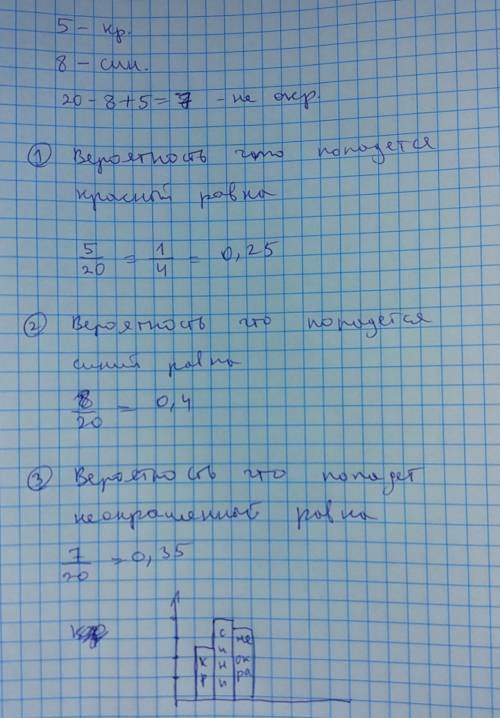 5 - кр.
8 - син.
20 - 8 + 5 = 7 - не окр.
① Вероятность что попадется
красный равна
5/20 = 1/4 = 0,25
② Вероятность что попадется
синий равна
8/20 = 0,4
③ Вероятность что попадет
неокрашенный равна
7/20 = 0,35
кр
сини
не окра